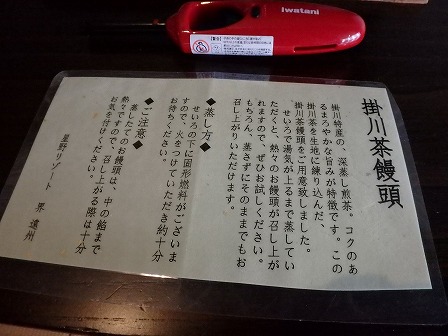 iwatani
掛川茶饅頭
掛川特産の、深蒸し煎茶。コクのあ
るまろやかな旨みが特徴です。この
掛川茶を生地に練り込んだ、
掛川茶饅頭をご用意致しました。
せいろで湯気が上るまで蒸してい
ただくと、熱々のお饅頭が召し上が
れますので、ぜひお試しください。
もちろん、蒸さずにそのままでもお
召し上がりいただけます。
◆蒸し方◆
せいろの下に固形燃料がございま
すので、火をつけていただき約十分
お待ちください。
◆ご注意◆
蒸したてのお饅頭は、中の餡まで
熱々ですので、召し上がる際は十分
お気を付けください。
星野リゾート 界 遠州